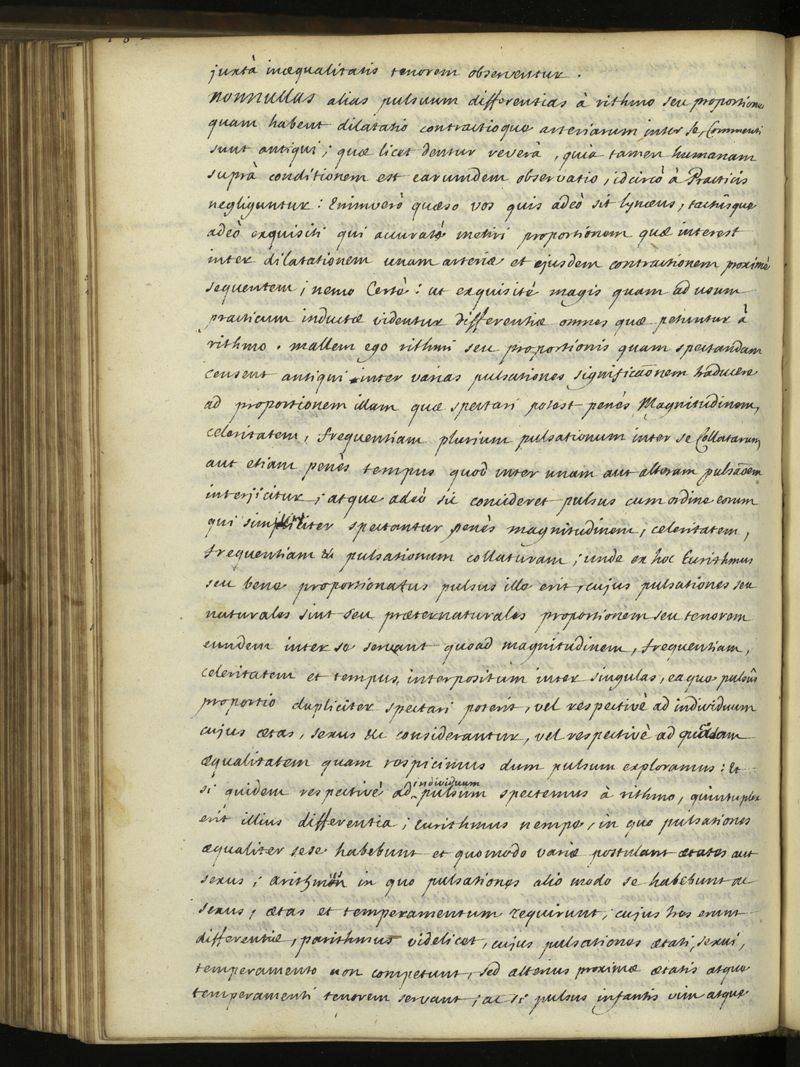 juxtà inæqualitatis tenorem observentur.
Nonnullas alias pulsuum differentias à rithmo seu proportione
quam habent dilatatio contractioque arteriarum inter se, Commenti
sunt antiqui; quæ licet dentur reverà, quia tamen humanam
suprà conditionem est earumdem observatio, idcircò à Practicis
negliguntur: Enimverò quæso vos quis adeò sit lynceus, tactûsque
adeò exquisiti qui accuratè metiri proportionem quæ interest
inter dilatationem unam arteriæ et ejusdem contractionem proximè
sequentem; nemo Certè: ut exquisitè magis quam ad usum
practicum inductæ videntur differentiæ omnes quæ petuntur à
rithmo. mallem ego rithmi seu proportionis quam spectandam
censent antiqui inter varias pulsationes significaōnem traducere
ad proportionem illam quæ spectari potest penès Magnitudinem,
celeritatem, frequentiam plurium pulsationum inter se Collatarum,
aut etiam penès tempus quod inter unam aut alteram pulsāōem
interjicitur; atque adeò sic concideret pulsus cum ordine eorum
qui simpliciter spectantur penès magnitudinem, celeritatem,
frequentiam &c pulsationum collaturam; unde ex hoc Eurithmus
seu bene proportionatus pulsus ille erit, cujus pulsationes seu
naturales sint seu præternaturales proportionem seu tenorem
eundem inter se servant quoad magnitudinem, frequentiam,
celeritatem et tempus interpositum inter singulas, eaque pulsûs
proportio dupliciter spectari poterit, vel respectivè ad individuum
cujus ætas, sexus &c considerantur, vel respectivè ad quādam
æqualitatem quam respicimus dum pulsum exploramus: Et
si quidem respectivè ad individuum pulsum spectemus à rithmo, quintuplex
erit illius differentia; Eurithmus nempe, in quo pulsationes
æqualiter sese habebunt et quomodo variæ postulant ætates aut
sexus; arithmus in quo pulsationes alio modo se habebunt ac
sexus, ætas et temperamentum requirunt, cujus tres erunt
differentiæ, parithmus videlicet, cujus pulsationes ætati, sexui,
temperamento non competunt, sed alterius proximæ ætatis atque
temperamenti tenorem servant; ac si pulsus infantis vim atque